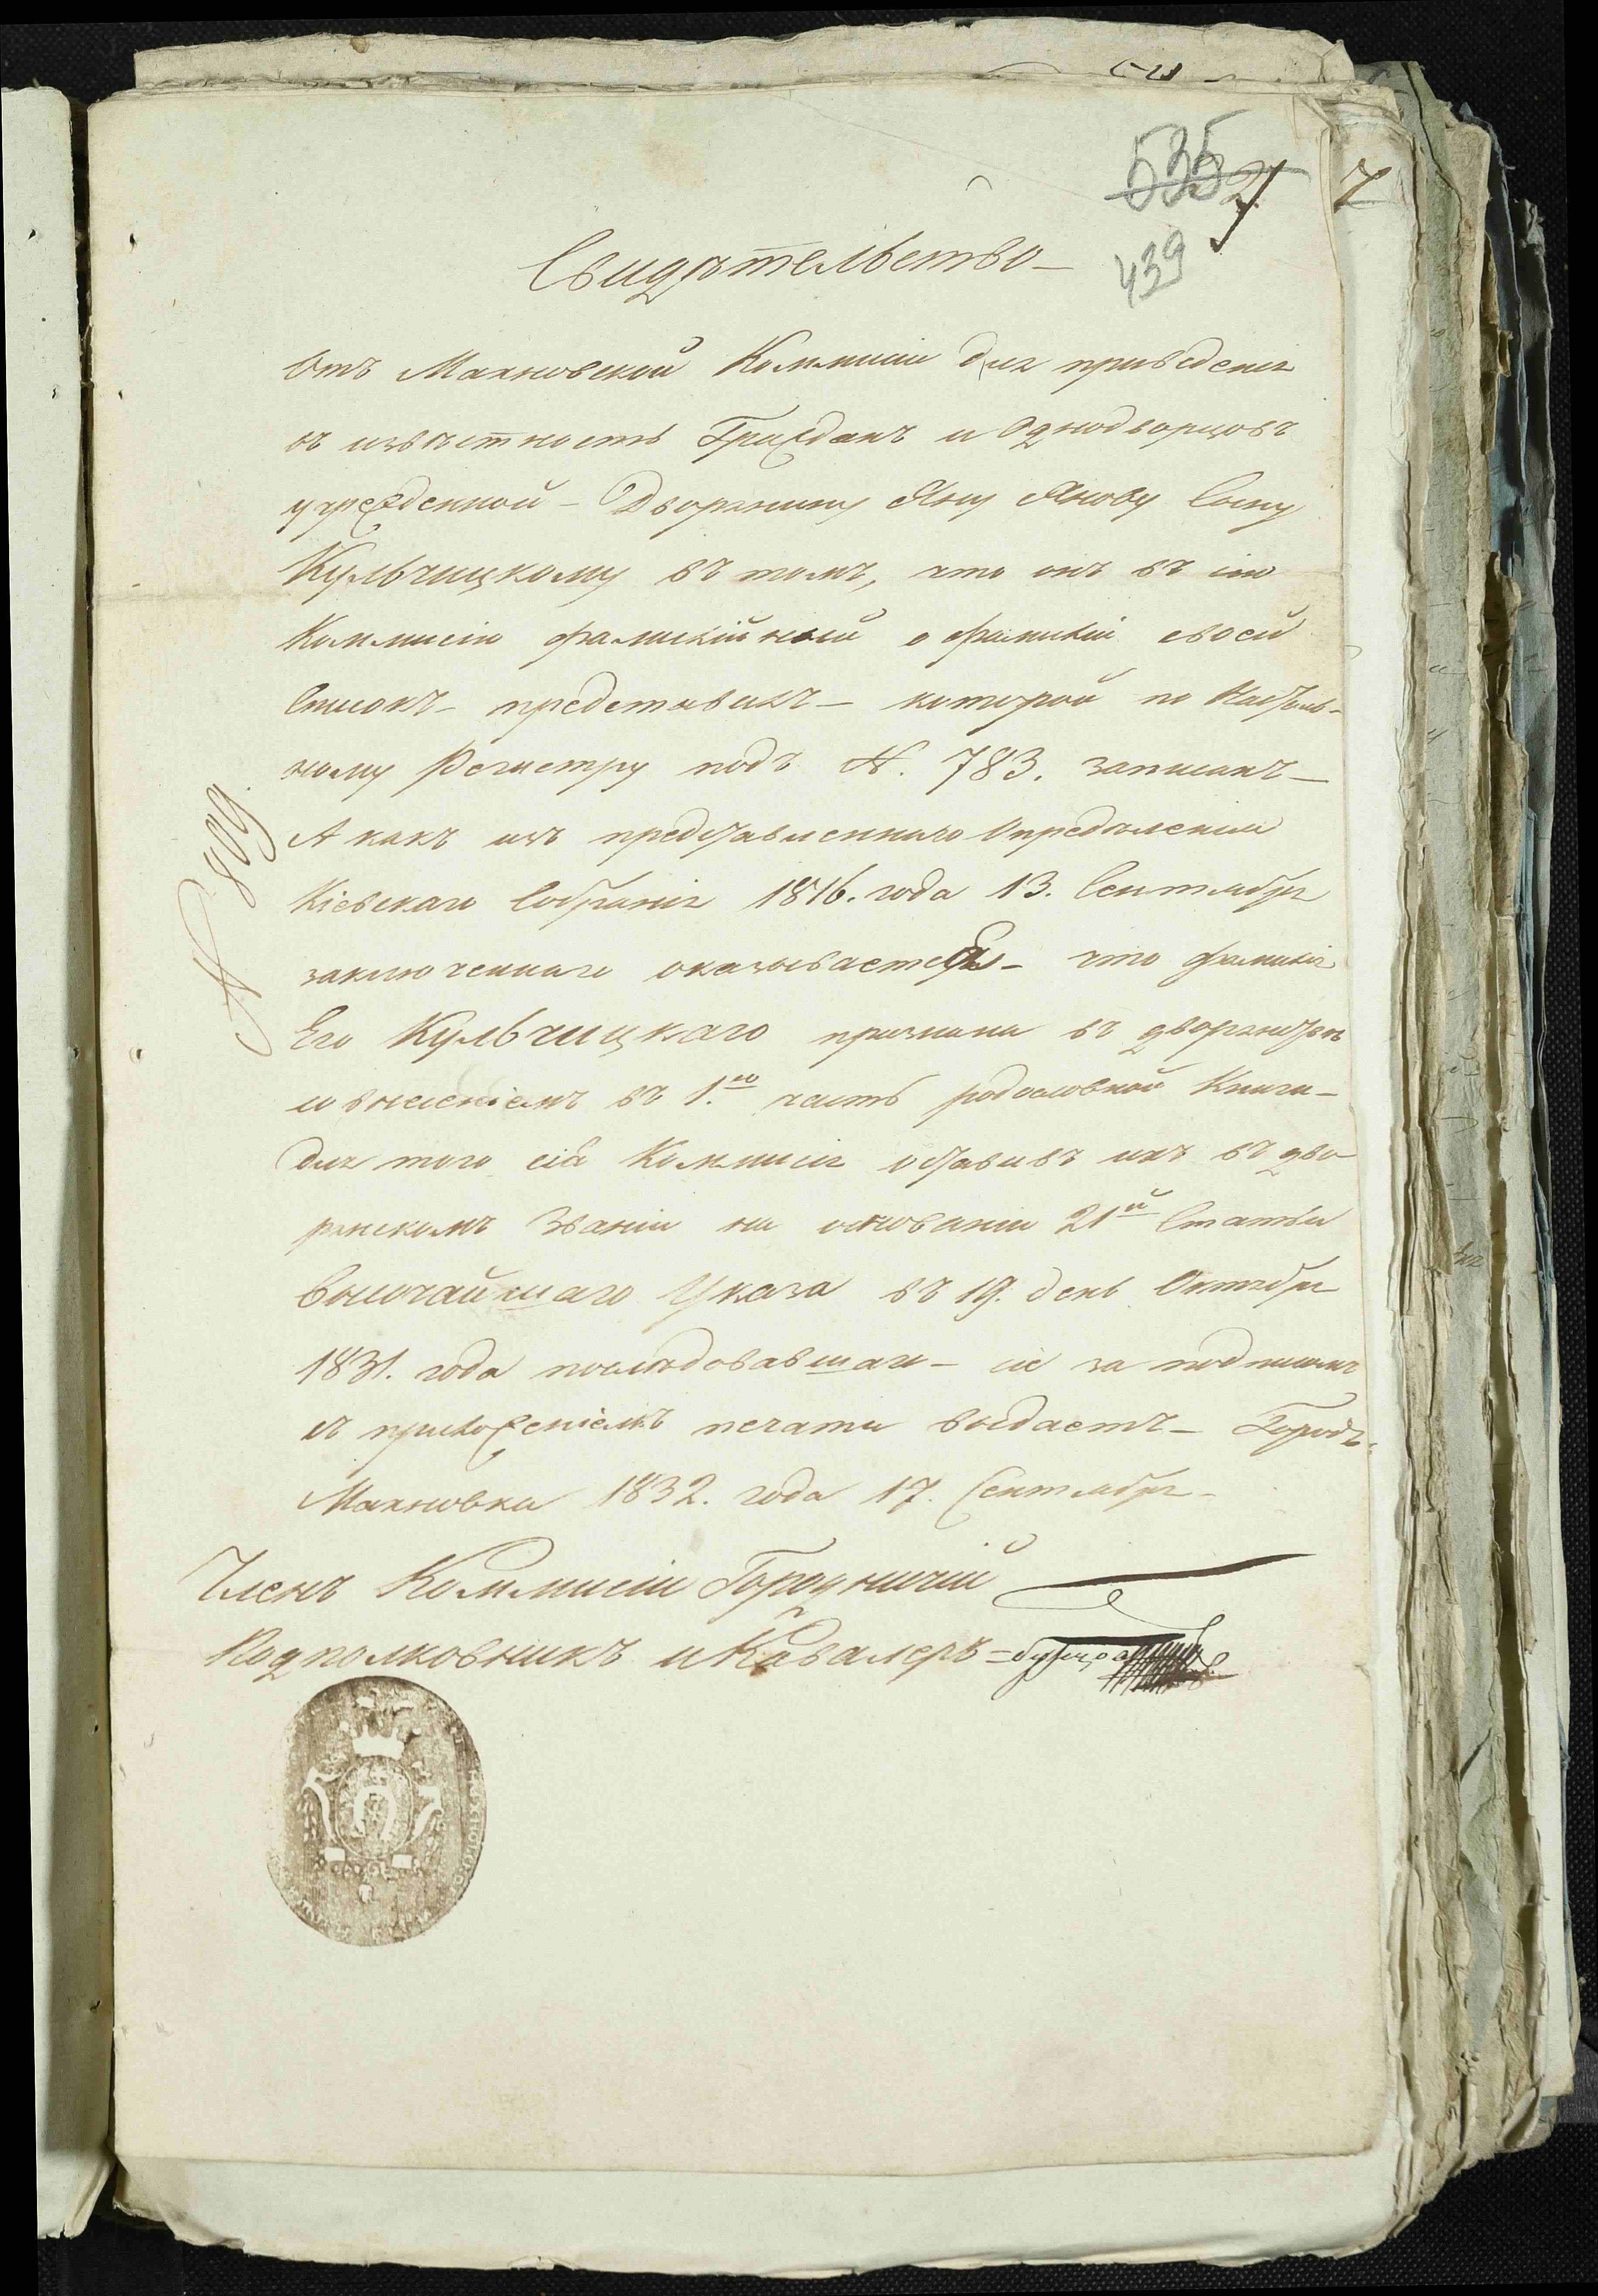 535 2 7
439
Свидѣтельство –
Отъ Махновской Коммисіи для приведенія
въ извѣстность Гражданъ и Однодворцовъ
учрежденной – Дворянину Яну Янову Сыну
Кульчицкому въ томъ, что онъ въ сію
Коммисію фамилійный о фамиліи своей
Списокъ – представилъ – которой по Настоль-
ному Регистру подъ N. 783. записанъ –
А какъ изъ представленнаго Опредѣленія
Кіевскаго Собранія 1816. года 13. Сентября
заключеннаго оказывается – что фамилія
Его Кульчицкаго признана въ дворянствѣ
и внесеніемъ въ 1.ю часть родословной Книги –
Для того сія Коммисія оставивъ ихъ въ дво
рянскомъ Званіи на основаніи 21й Статьи
Высочайшаго Указа въ 19. день Октября
1831. года послѣдовавшаго – сіе за подписомъ
съ приложеніемъ печати выдаетъ – Городъ
Махновка 1832. года 17. Сентября –
N 809.
Членъ Коммисіи Городничій
Подполковникъ и Кавалеръ =